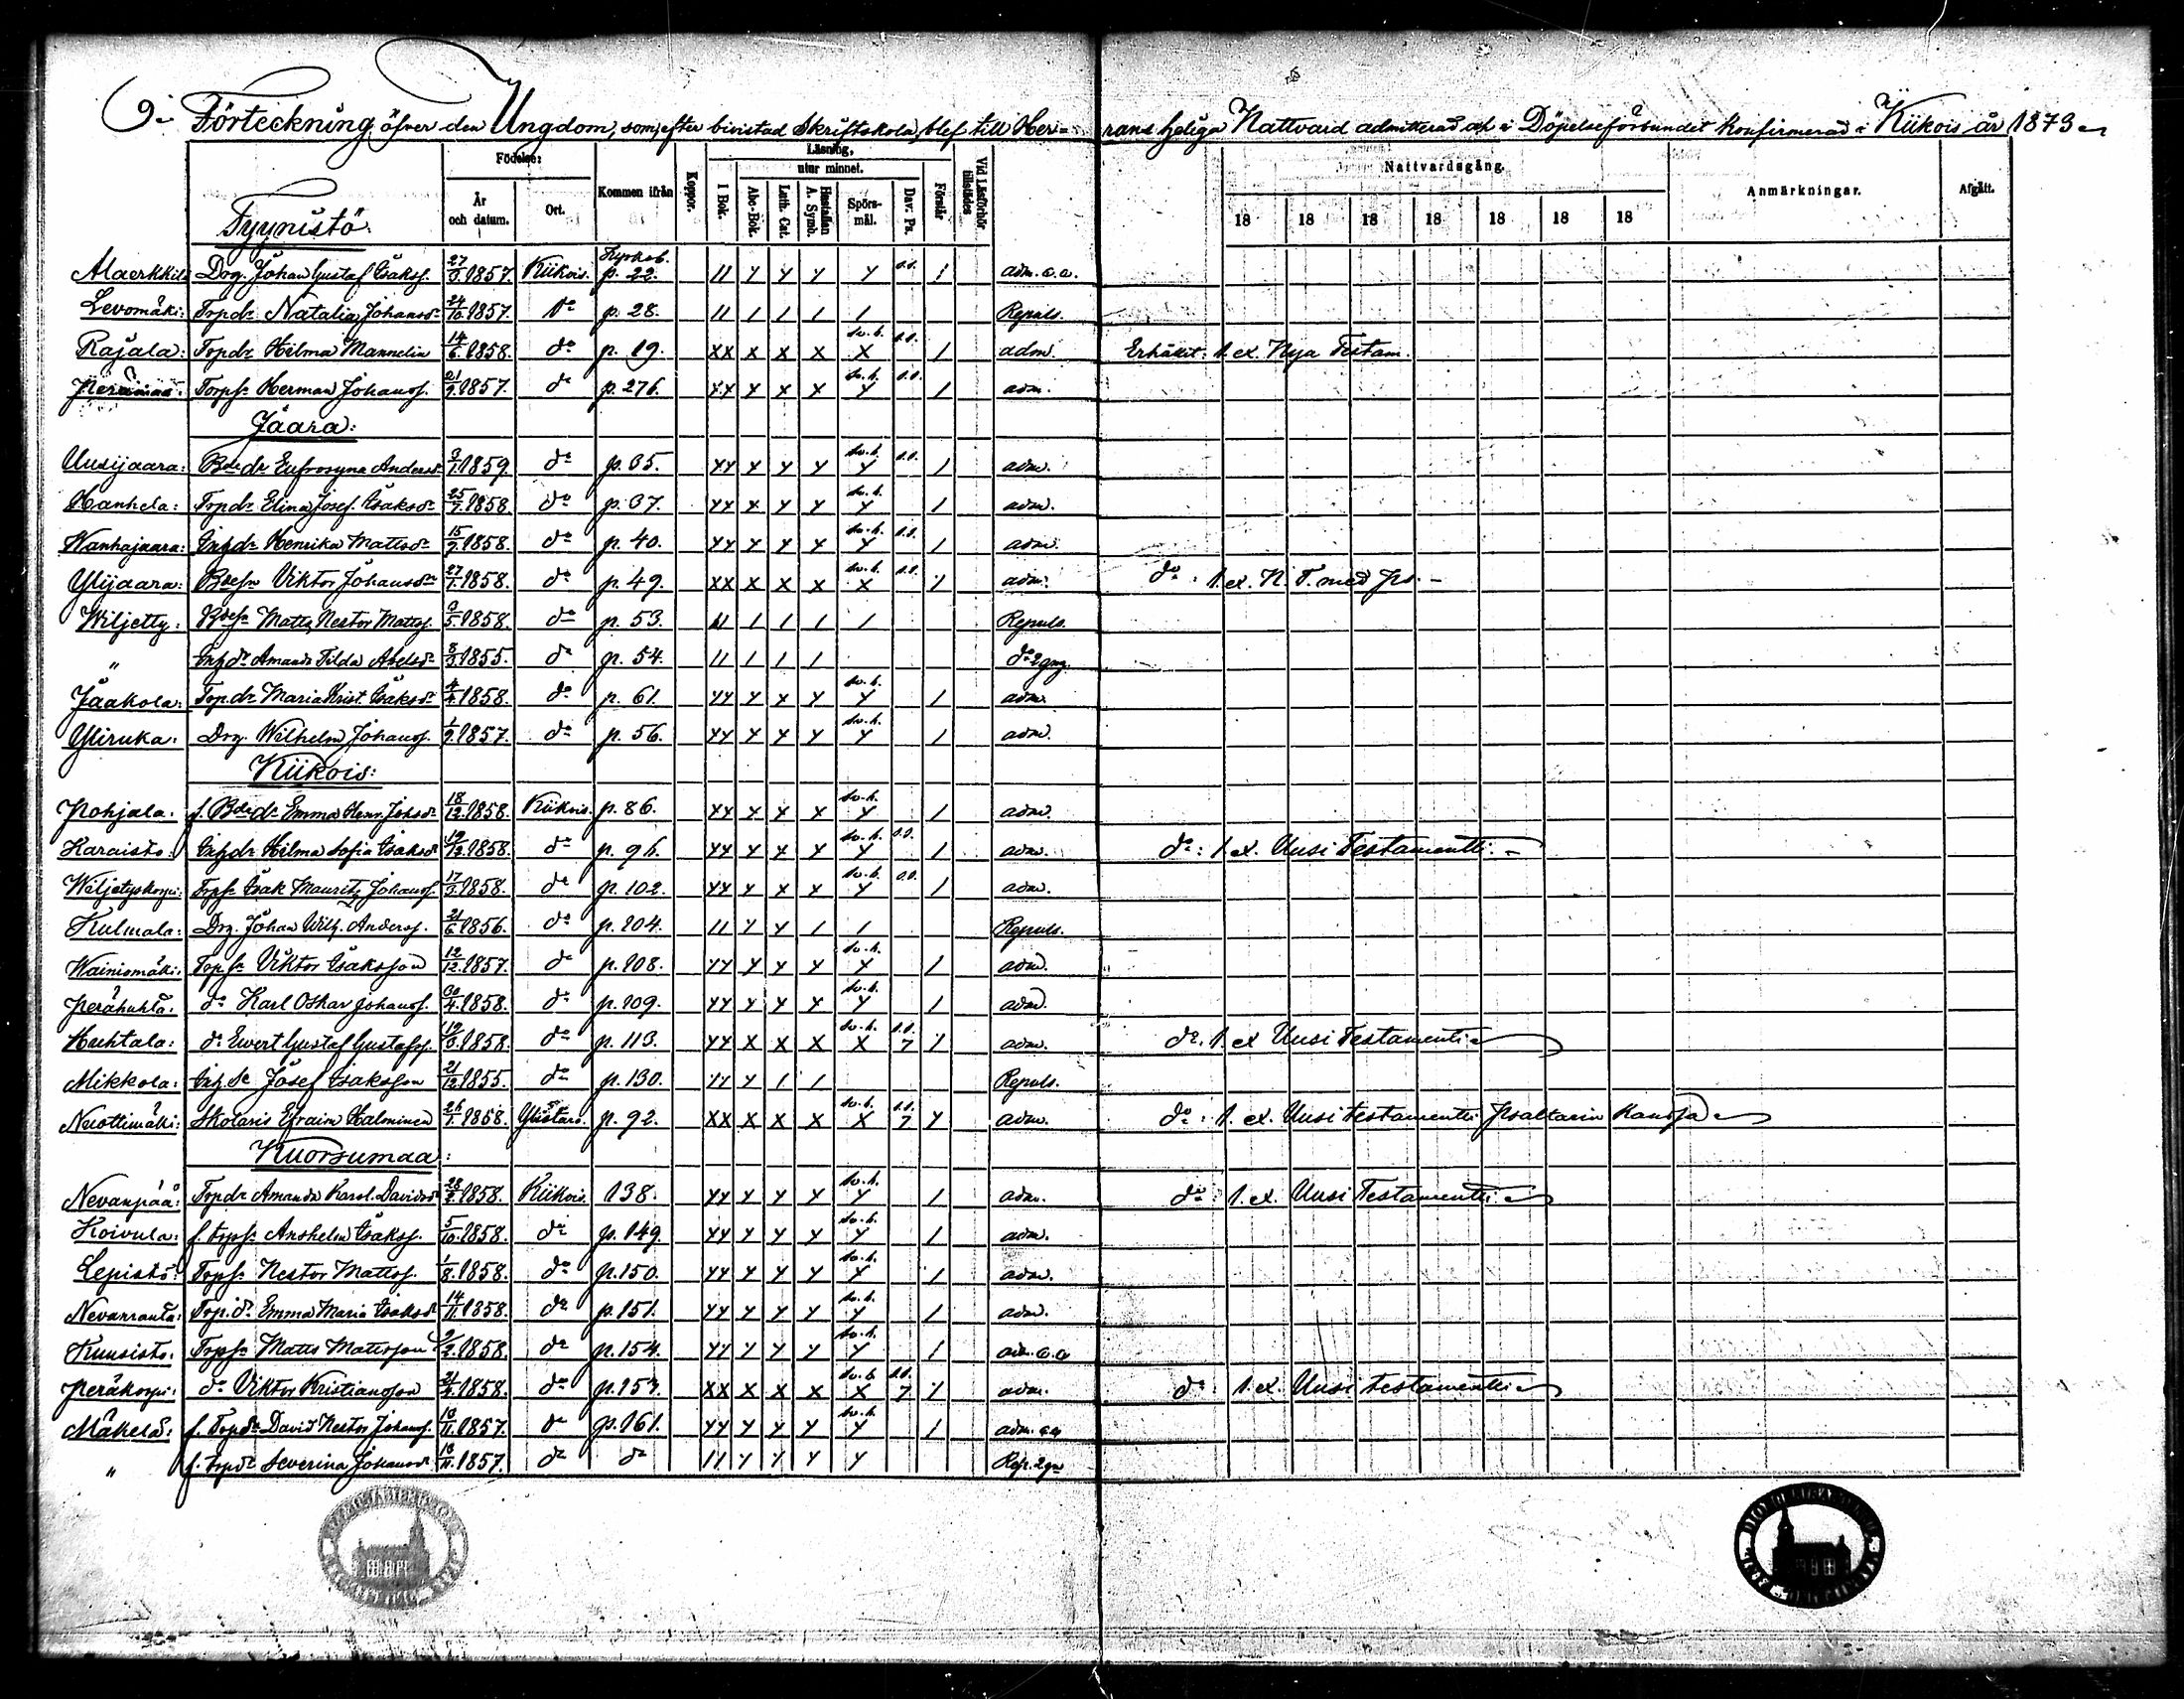 Förteckning öfver den Ungdom, som, efter bivistad Skriftskola, blef till Herrans heliga Nattvard admitterad och i Döpelseförbundet konfirmerad i Kiikois år 1873
Födelse: Läsning, Nattvardsgång.
År och datum. Ort. Kommen ifrån Koppor. I Bok. utur minnet. Abc-Bok. Luth. Cat. Hustaflan A. Symb. Spörsmål. Dav. Ps. Förstår Vid Läsförhör tillstädes 18 18 18 18 18 18 18 Anmärkningar. Afgått.
Tyynistö:
Alaerkkilä Drg. Johan Gustaf Isaksf. 27/3 1857. Kiikois. Kyrkob. p. 22. II y y y y s.s. 1 adm. c.a.
Levomäki: Torpdr Natalia Johansdr 24/10 1857. do p. 28. II / / / / Repuls.
Rajala: Torpdr Hilma Mannelin 14/6 1858. do p. 19. xx x x x sv.h. x s.s. / adm. Erhållit: 1. ex. Nya Testam.
Perämaa: Torpsn Herman Johansf. 21/9 1857. do p. 276. xx x x x sv.h. y s.s. / adm.
Jaara:
Uusijaara: Bdedr Eufrosyna Andersdr 3/1 1859 do p. 35. yy y y y sv.h. y s.s. / adm.
Hanhela: Torpdr Elina Josef. Isaksdr 25/7 1858 do p. 37. yy x y y sv.h. y / adm.
Wanhajaara: Inhdr Henrika Mattsdr 15/9 1858. do p. 40. yy y y y sv.h. y s.s. / adm.
Ylijaara: Bdesn Viktor Johansson 27/1 1858. do p. 49. xx x x x sv.h. x s.s. / adm. do: 1. ex. N. T. med ps. –
Wiljetty: Bdesn Matts Nestor Mattsf. 3/5 1858. do p. 53. II / / / / Repuls.
" Inhdr Amanda Tilda Abelsdr 8/3 1855. do p. 54. II / / / do 2 gng.
Jaakola: Torpdr Maria Krist. Isaksdr 4/4 1858. do p. 61. yy y x y sv.h. y / adm.
Yliruka: Drg. Wilhelm Johansf. 1/9 1857. do p. 56. yy y y y sv.h. y / adm.
Kiikois:
Pohjala: f. Bdedr Emma Henr. Johsdr 18/12 1858. Kiikois. p. 86. yy y y x sv.h. y / adm.
Karaisto: Inhdr Hilma Sofia Isaksdr 19/12 1858. do p. 96. yy y y y sv.h. y s.s. / adm. do: 1. ex. Uusi Testamentti. –
Wiljetyskorpi: Torpsn Isak Mauritz Johansf. 17/3 1858. do p. 102. yy y x y sv.h. y s.s. / adm.
Kulmala: Drg. Johan Wilh. Andersf. 21/6 1856. do p. 104. II y y / / Repuls.
Wainiomäki: Torpsn Viktor Isaksson 12/12 1857. do p. 108. yy y y y sv.h. y / adm.
Perähuhta: do Karl Oskar Johansf. 30/4 1858. do p. 109. yy y y y sv.h. y / adm.
Huhtala: do Ewert Gustaf Gustafsf. 19/3 1858. do p. 113. yy x x x sv.h. x s.s. 7 / adm. do: 1. ex Uusi Testamentti
Mikkola: Inh.sn Josef Isaksson 21/12 1855. do p. 130. yy y / / Repuls.
Nuottimäki: Skolaris Efraim Halminen 26/1 1858. Ylistaro. p. 92. xx x x x sv.h. x s.s. 7 y adm. do: 1. ex. Uusi testamentti Psaltarin kanssa
Kuorsumaa:
Nevanpää: Torpdr Amanda Karol. Davidsdr 28/2 1858. Kiikois. 138. yy y y y sv.h. y / adm. do: 1. ex. Uusi Testamentti
Koivula: f. torpsn Anshelm Isaksf. 5/10 1858. do p. 149. yy y y y sv.h. y / adm.
Lepistö: Torpsn Nestor Mattsf. 1/8 1858. do p. 150. yy y y y sv.h. y / adm.
Nevanranta: Torp.dr Emma Maria Isaksdr 14/11 1858. do p. 151. yy y y y sv.h. y / adm.
Kuusisto: Torpsn Matts Mattsson 9/2 1858. do p. 154. yy y y y sv.h. y / adm. c.a
Peräkorpi: do Viktor Kristiansson 21/4 1858. do p. 157. xx x x x sv.h. x s.s. 7 / adm. do 1. ex. Uusi testamentti
Mäkelä: f. Torpsn David Nestor Johansf. 16/11 1857. do p. 161. yy y y y sv.h. y / adm. c.a
" f. torpdr Severina Johansdr 16/11 1857. do do II y y y y Rep. 2 gn